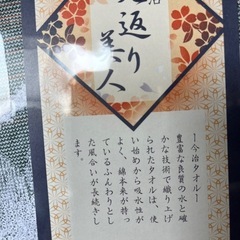 治
見返り
美人
ー今治タオルー
豊富な良質の水と確
かな技術で織り上げ
られたタオルは、使
い始めから吸水性が
よく、綿本来が持っ
ているふんわりとし
た風合いが長続きし
ます。